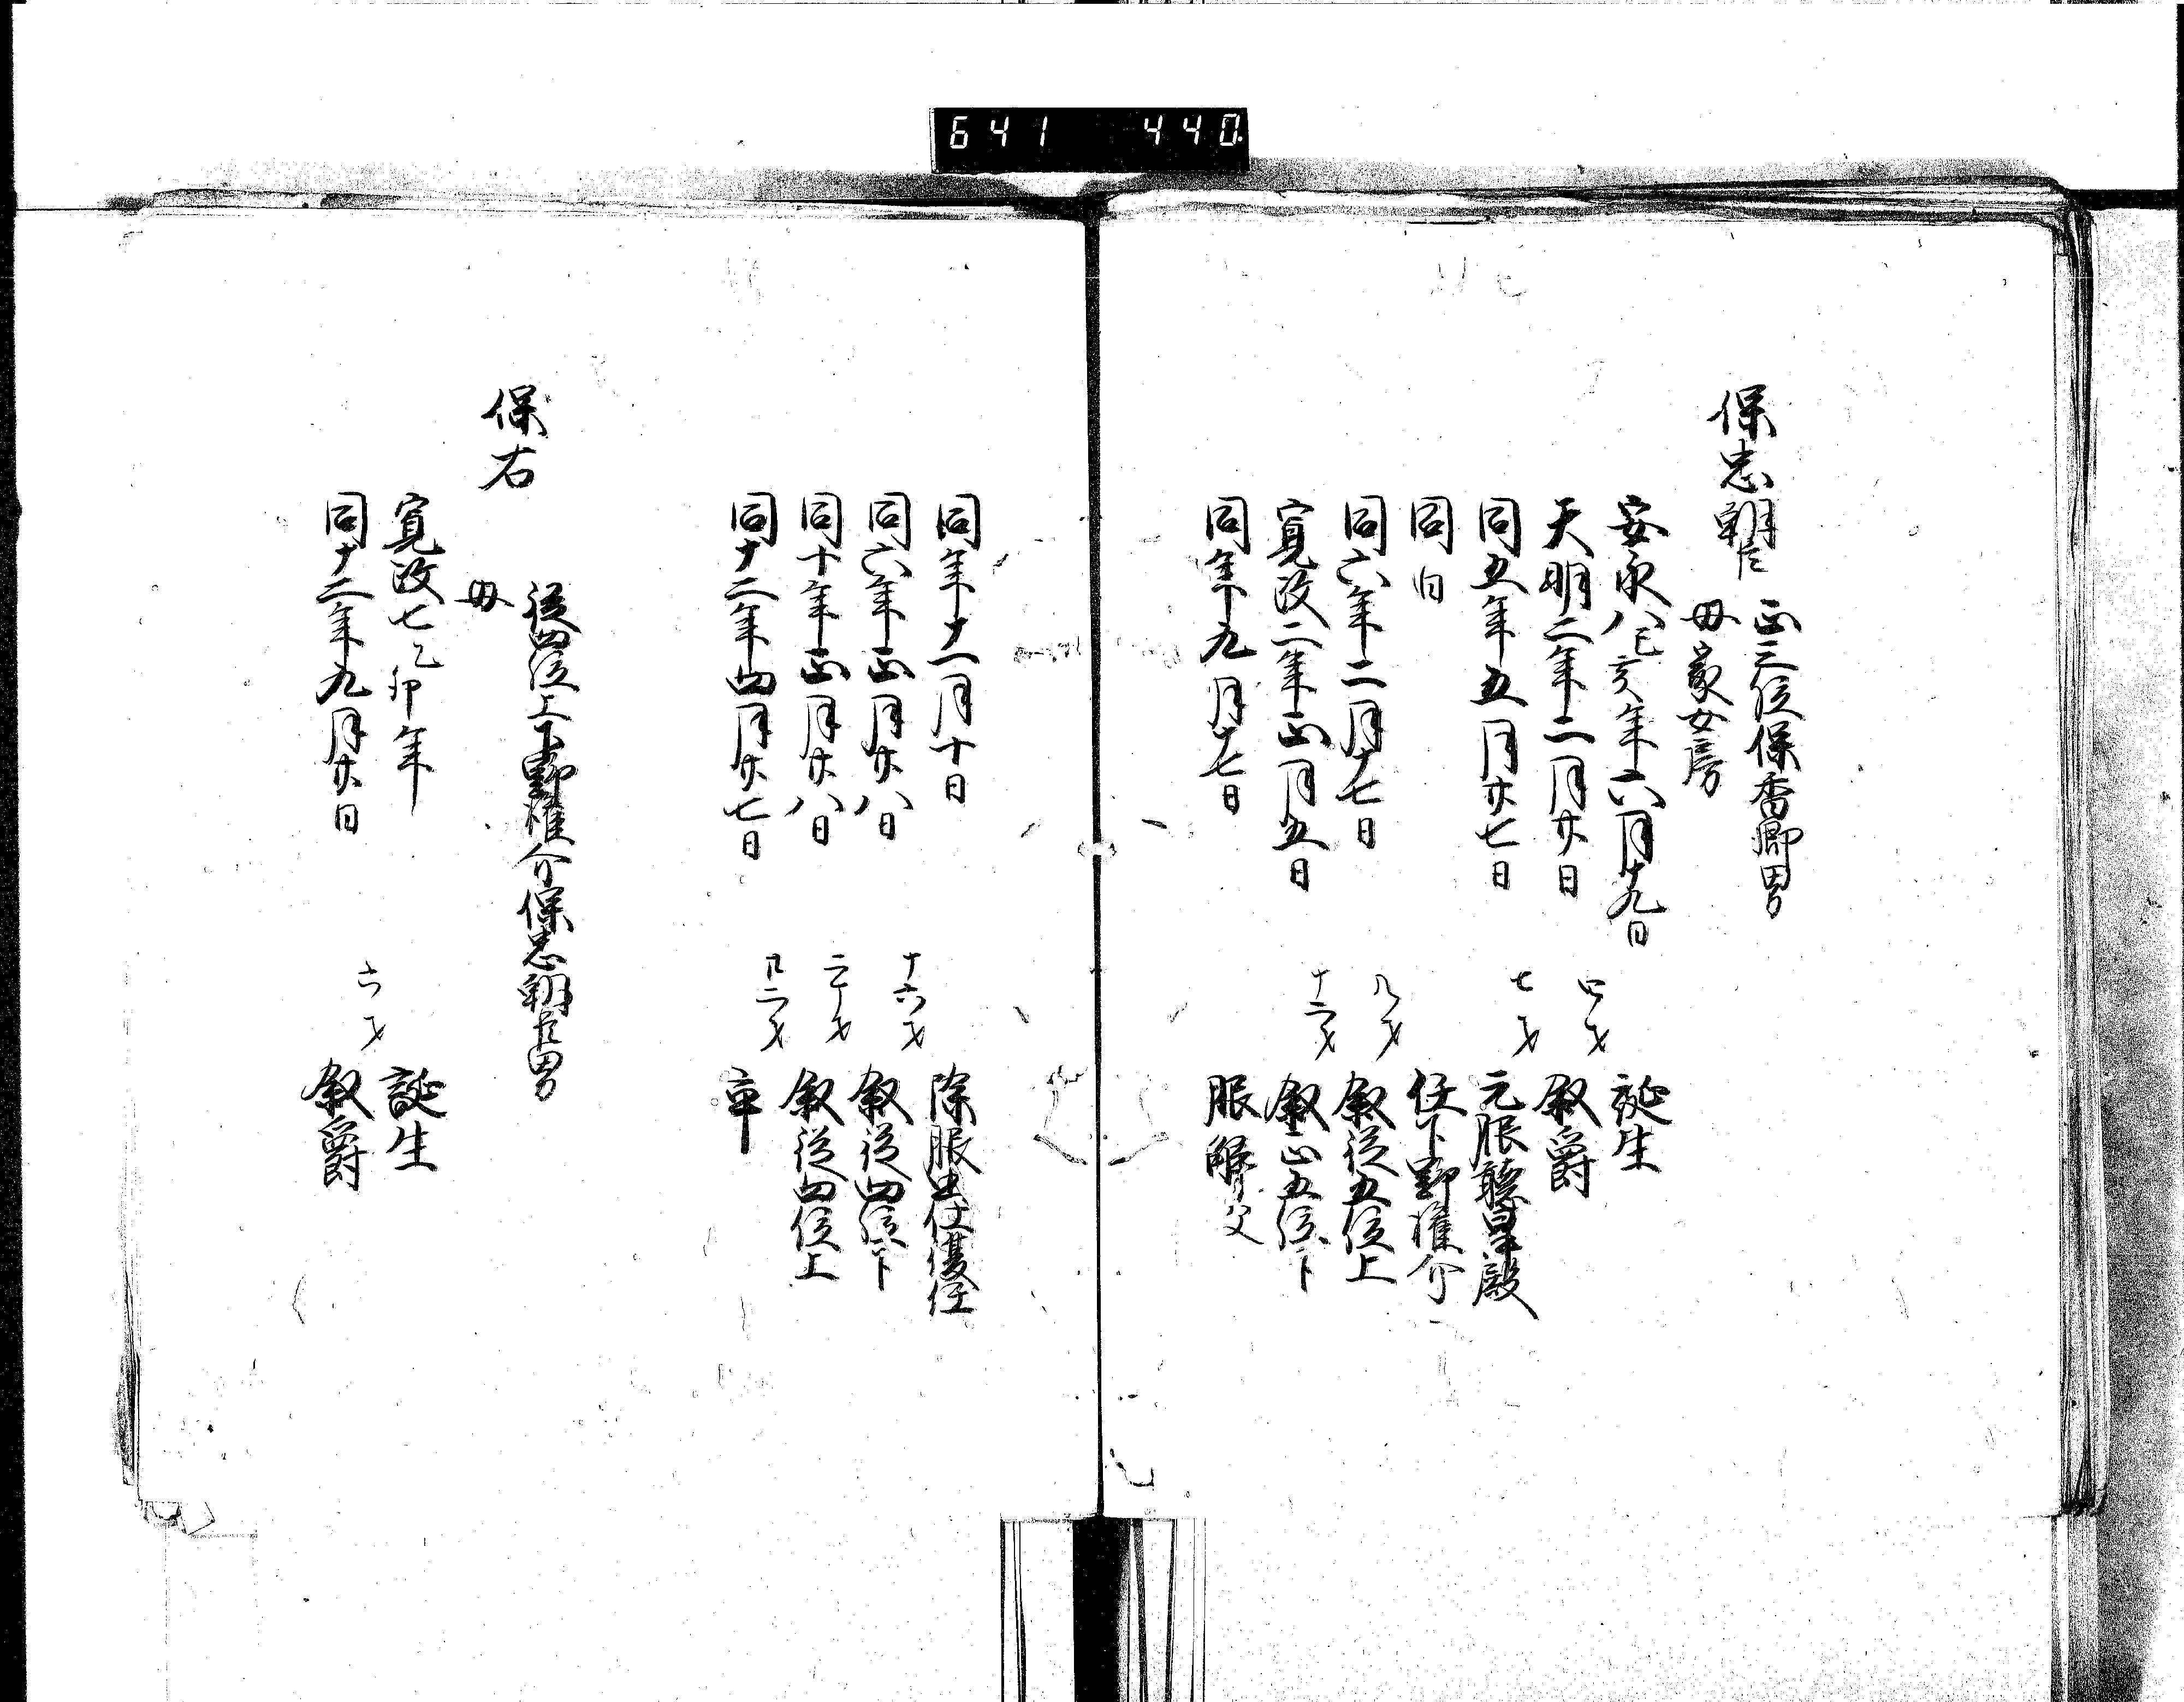 641 440
保忠朝臣
正三位保香卿男
母家女房
安永八己亥年六月十九日 誕生
天明二年二月廿日 四才 叙爵
同五年五月廿七日 七才 元服聴昇殿
同日 任下野権介
同六年二月十七日 八才 叙従五位上
寛政二年正月五日 十二才 叙正五位下
同年九月十七日 服解父
同年十一月十日 除服出仕復任
同六年正月廿八日 十六才 叙従四位下
同十年正月廿八日 二十才 叙従四位上
同十二年四月廿七日 廿二才 卒
保右
従四位上下野権介保忠朝臣男
母
寛政七乙卯年 誕生
同十二年九月廿日 六才 叙爵